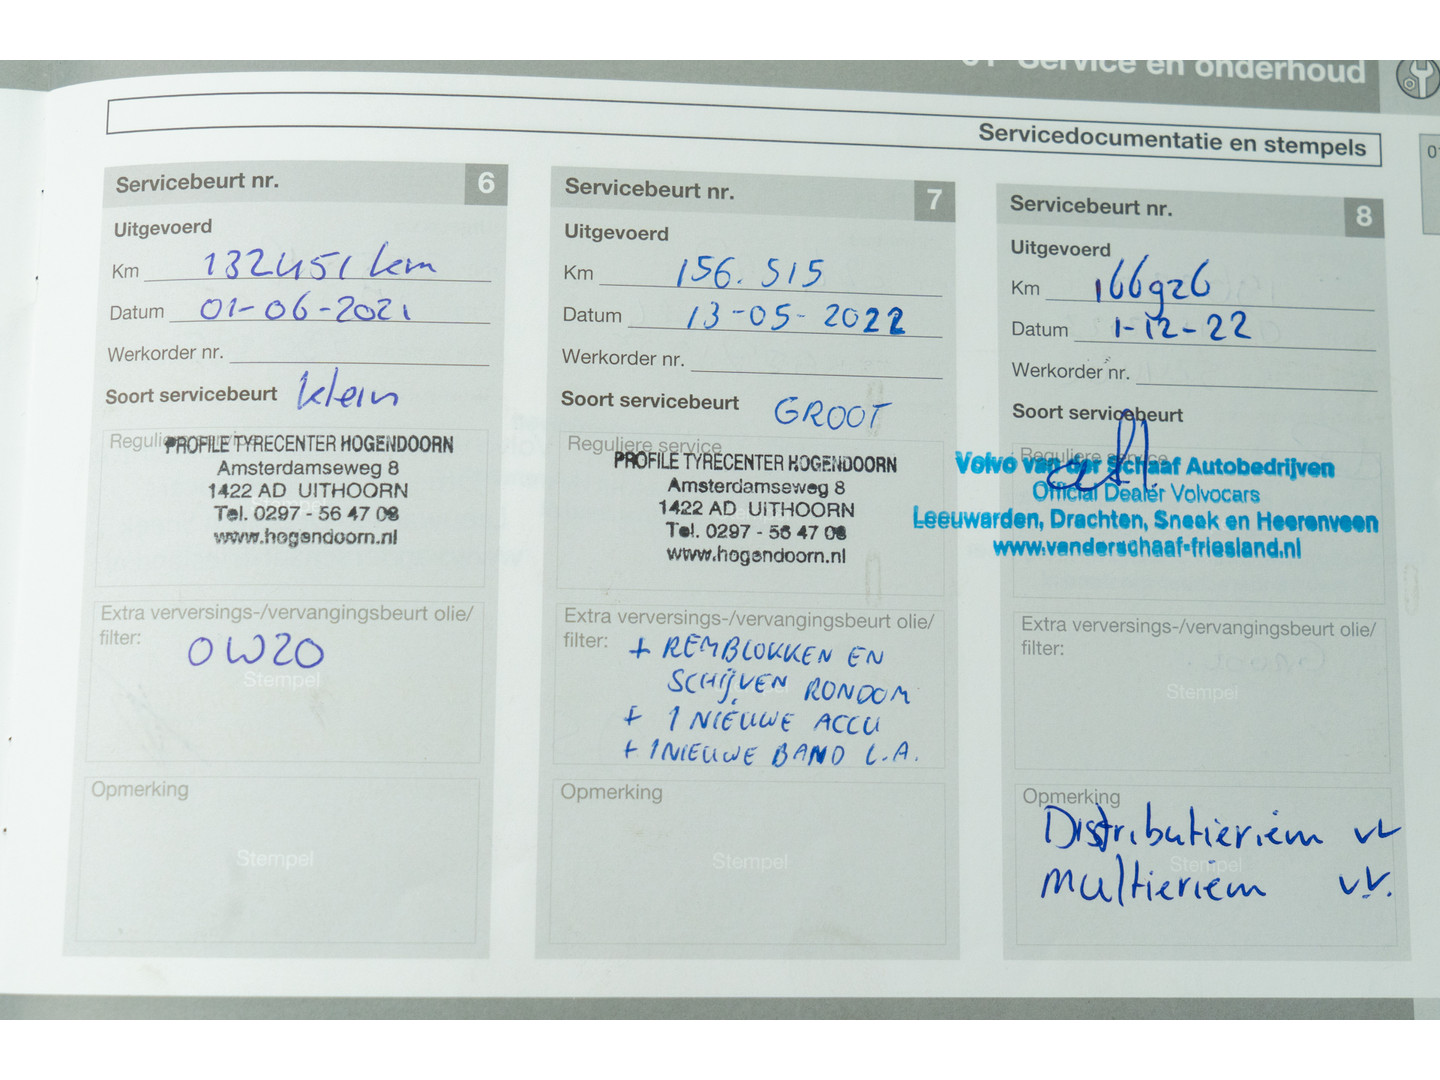 01 Service en onderhoud
Servicedocumentatie en stempels
01
Servicebeurt nr. 6
Uitgevoerd
Km 132451 km
Datum 01-06-2021
Werkorder nr.
Soort servicebeurt klein
Reguliere service
PROFILE TYRECENTER HOGENDOORN
Amsterdamseweg 8
1422 AD UITHOORN
Tel. 0297 - 56 47 08
www.hogendoorn.nl
Extra verversings-/vervangingsbeurt olie/
filter:
OW20
Stempel
Opmerking
Stempel
Servicebeurt nr. 7
Uitgevoerd
Km 156.515
Datum 13-05-2022
Werkorder nr.
Soort servicebeurt GROOT
Reguliere service
PROFILE TYRECENTER HOGENDOORN
Amsterdamseweg 8
1422 AD UITHOORN
Tel. 0297 - 56 47 08
www.hogendoorn.nl
Extra verversings-/vervangingsbeurt olie/
filter: + REMBLOKKEN EN
SCHIJVEN RONDOM
+ 1 NIEUWE ACCU
+ 1 NIEUWE BAND L.A.
Opmerking
Stempel
Servicebeurt nr. 8
Uitgevoerd
Km 166926
Datum 1-12-22
Werkorder nr.
Soort servicebeurt
Reguliere service
Volvo van der Schaaf Autobedrijven
Official Dealer Volvocars
Leeuwarden, Drachten, Sneek en Heerenveen
www.vanderschaaf-friesland.nl
Extra verversings-/vervangingsbeurt olie/
filter:
Stempel
Opmerking
Distributieriem vv
Stempel
multieriem v.v.